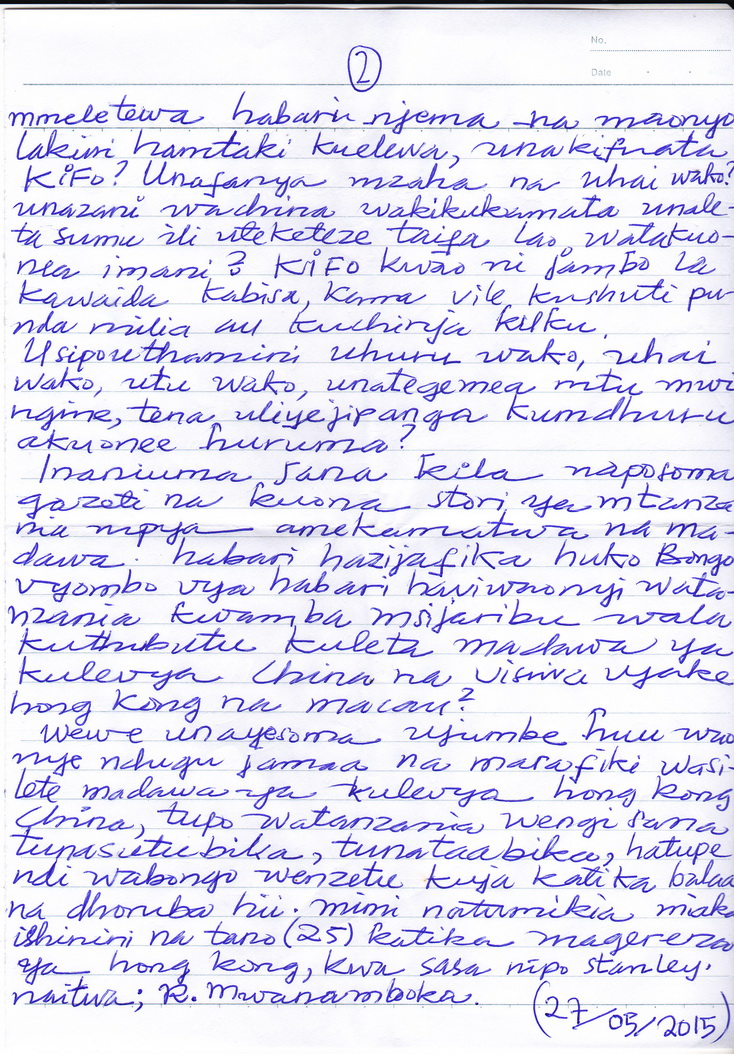 No.
Date
2
mmeletewa habari njema na maonyo
lakini hamtaki kuelewa, unakifuata
KiFo? Unafanya mzaha na uhai wako?
unazani wachina wakikukamata unale-
ta sumu ili uteketeze taifa lao, watakuo-
nea imani? KiFo kwao ni jambo la
kawaida kabisa, kama vile kushuti pu-
nda milia au kuchinja kuku.
Usipouthamini uhuru wako, uhai
wako, utu wako, unategemea mtu mwi
ngine, tena uliyejipanga kumdhuru
akuonee huruma?
Inaniuma sana kila naposoma
gazeti na kuona stori ya mtanza
nia mpya amekamatwa na ma-
dawa. habari hazijafika huko Bongo
vyombo vya habari haviwaonyi wata-
nzania kwamba msijaribu wala
kuthubutu kuleta madawa ya
kulevya China na visiwa vyake
hong Kong na macau?
Wewe unayesoma ujumbe huu wao
nye ndugu jamaa na marafiki wasi-
lete madawa ya kulevya hong kong
China, tupo watanzania wengi sana
tunasutubika, tunataabika, hatupe
ndi wabongo wenzetu kuja katika balaa
na dhoruba hii. mimi natumikia miaka
ishirini na tano (25) katika magereza
ya hong kong, kwa sasa nipo stanley.
naitwa; R. Mwanamboka.
(27/05/2015)